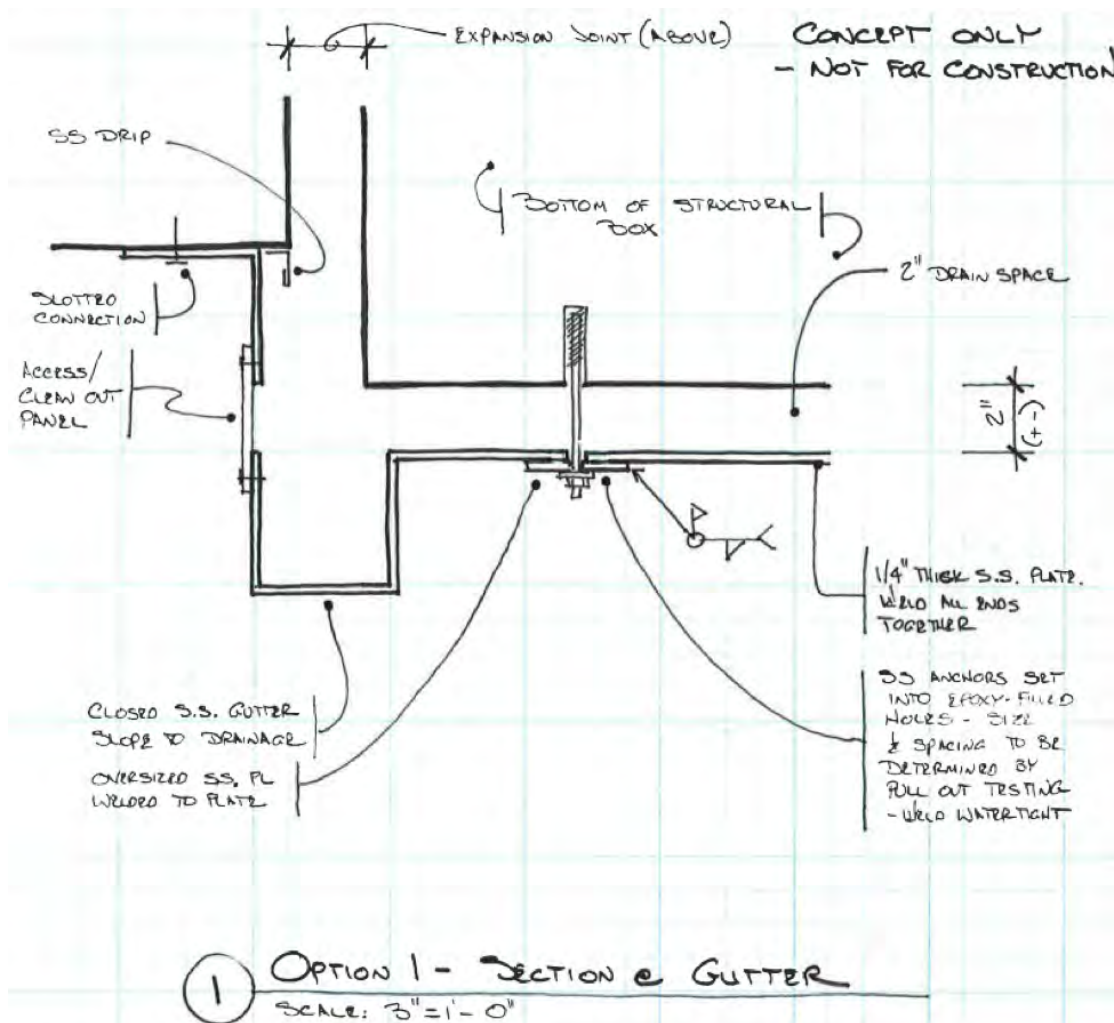 EXPANSION JOINT (ABOVE)
CONCEPT ONLY
- NOT FOR CONSTRUCTION
SS DRIP
BOTTOM OF STRUCTURAL
BOX
2" DRAIN SPACE
SLOTTED
CONNECTION
ACCESS/
CLEAN OUT
PANEL
2"
(+-)
1/4" THICK S.S. PLATE.
WELD ALL ENDS
TOGETHER
SS ANCHORS SET
INTO EPOXY-FILLED
HOLES - SIZE
& SPACING TO BE
DETERMINED BY
PULL OUT TESTING
- WELD WATERTIGHT
CLOSED S.S. GUTTER
SLOPE TO DRAINAGE
OVERSIZED SS. PL
WELDED TO PLATE
1
OPTION 1 - SECTION @ GUTTER
SCALE: 3"=1'-0"